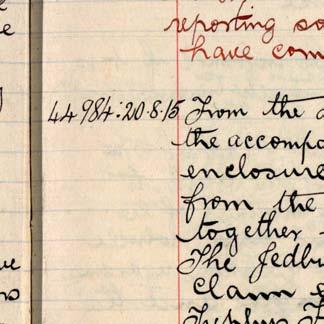 reporting so
have com
44984:20.8.15 From the
the accompa
enclosure
from the
together
The Jedbu
Claim